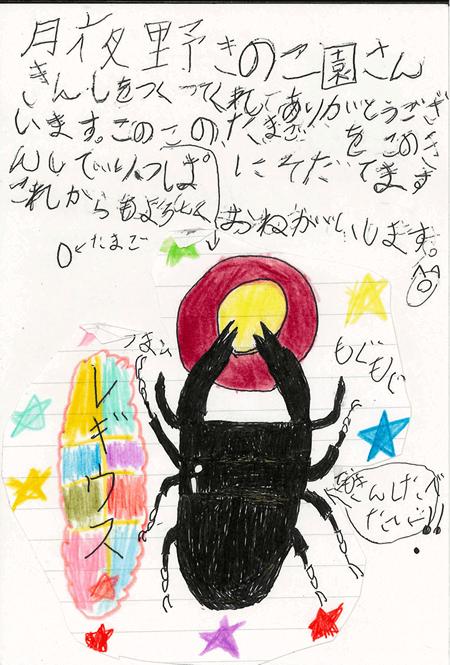 月夜野きのこ園さん
きんしをつくってくれてありがとうござ
います。このこのたまごをこのき
んしでりっぱにそだてます
これからもよろしくおねがいします。
たまご
もぐもぐ
レギウス